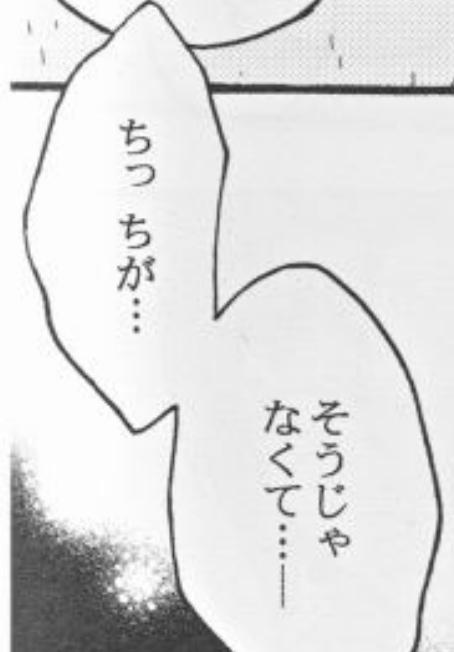 ちっ ちが…
そうじゃ
なくて……―